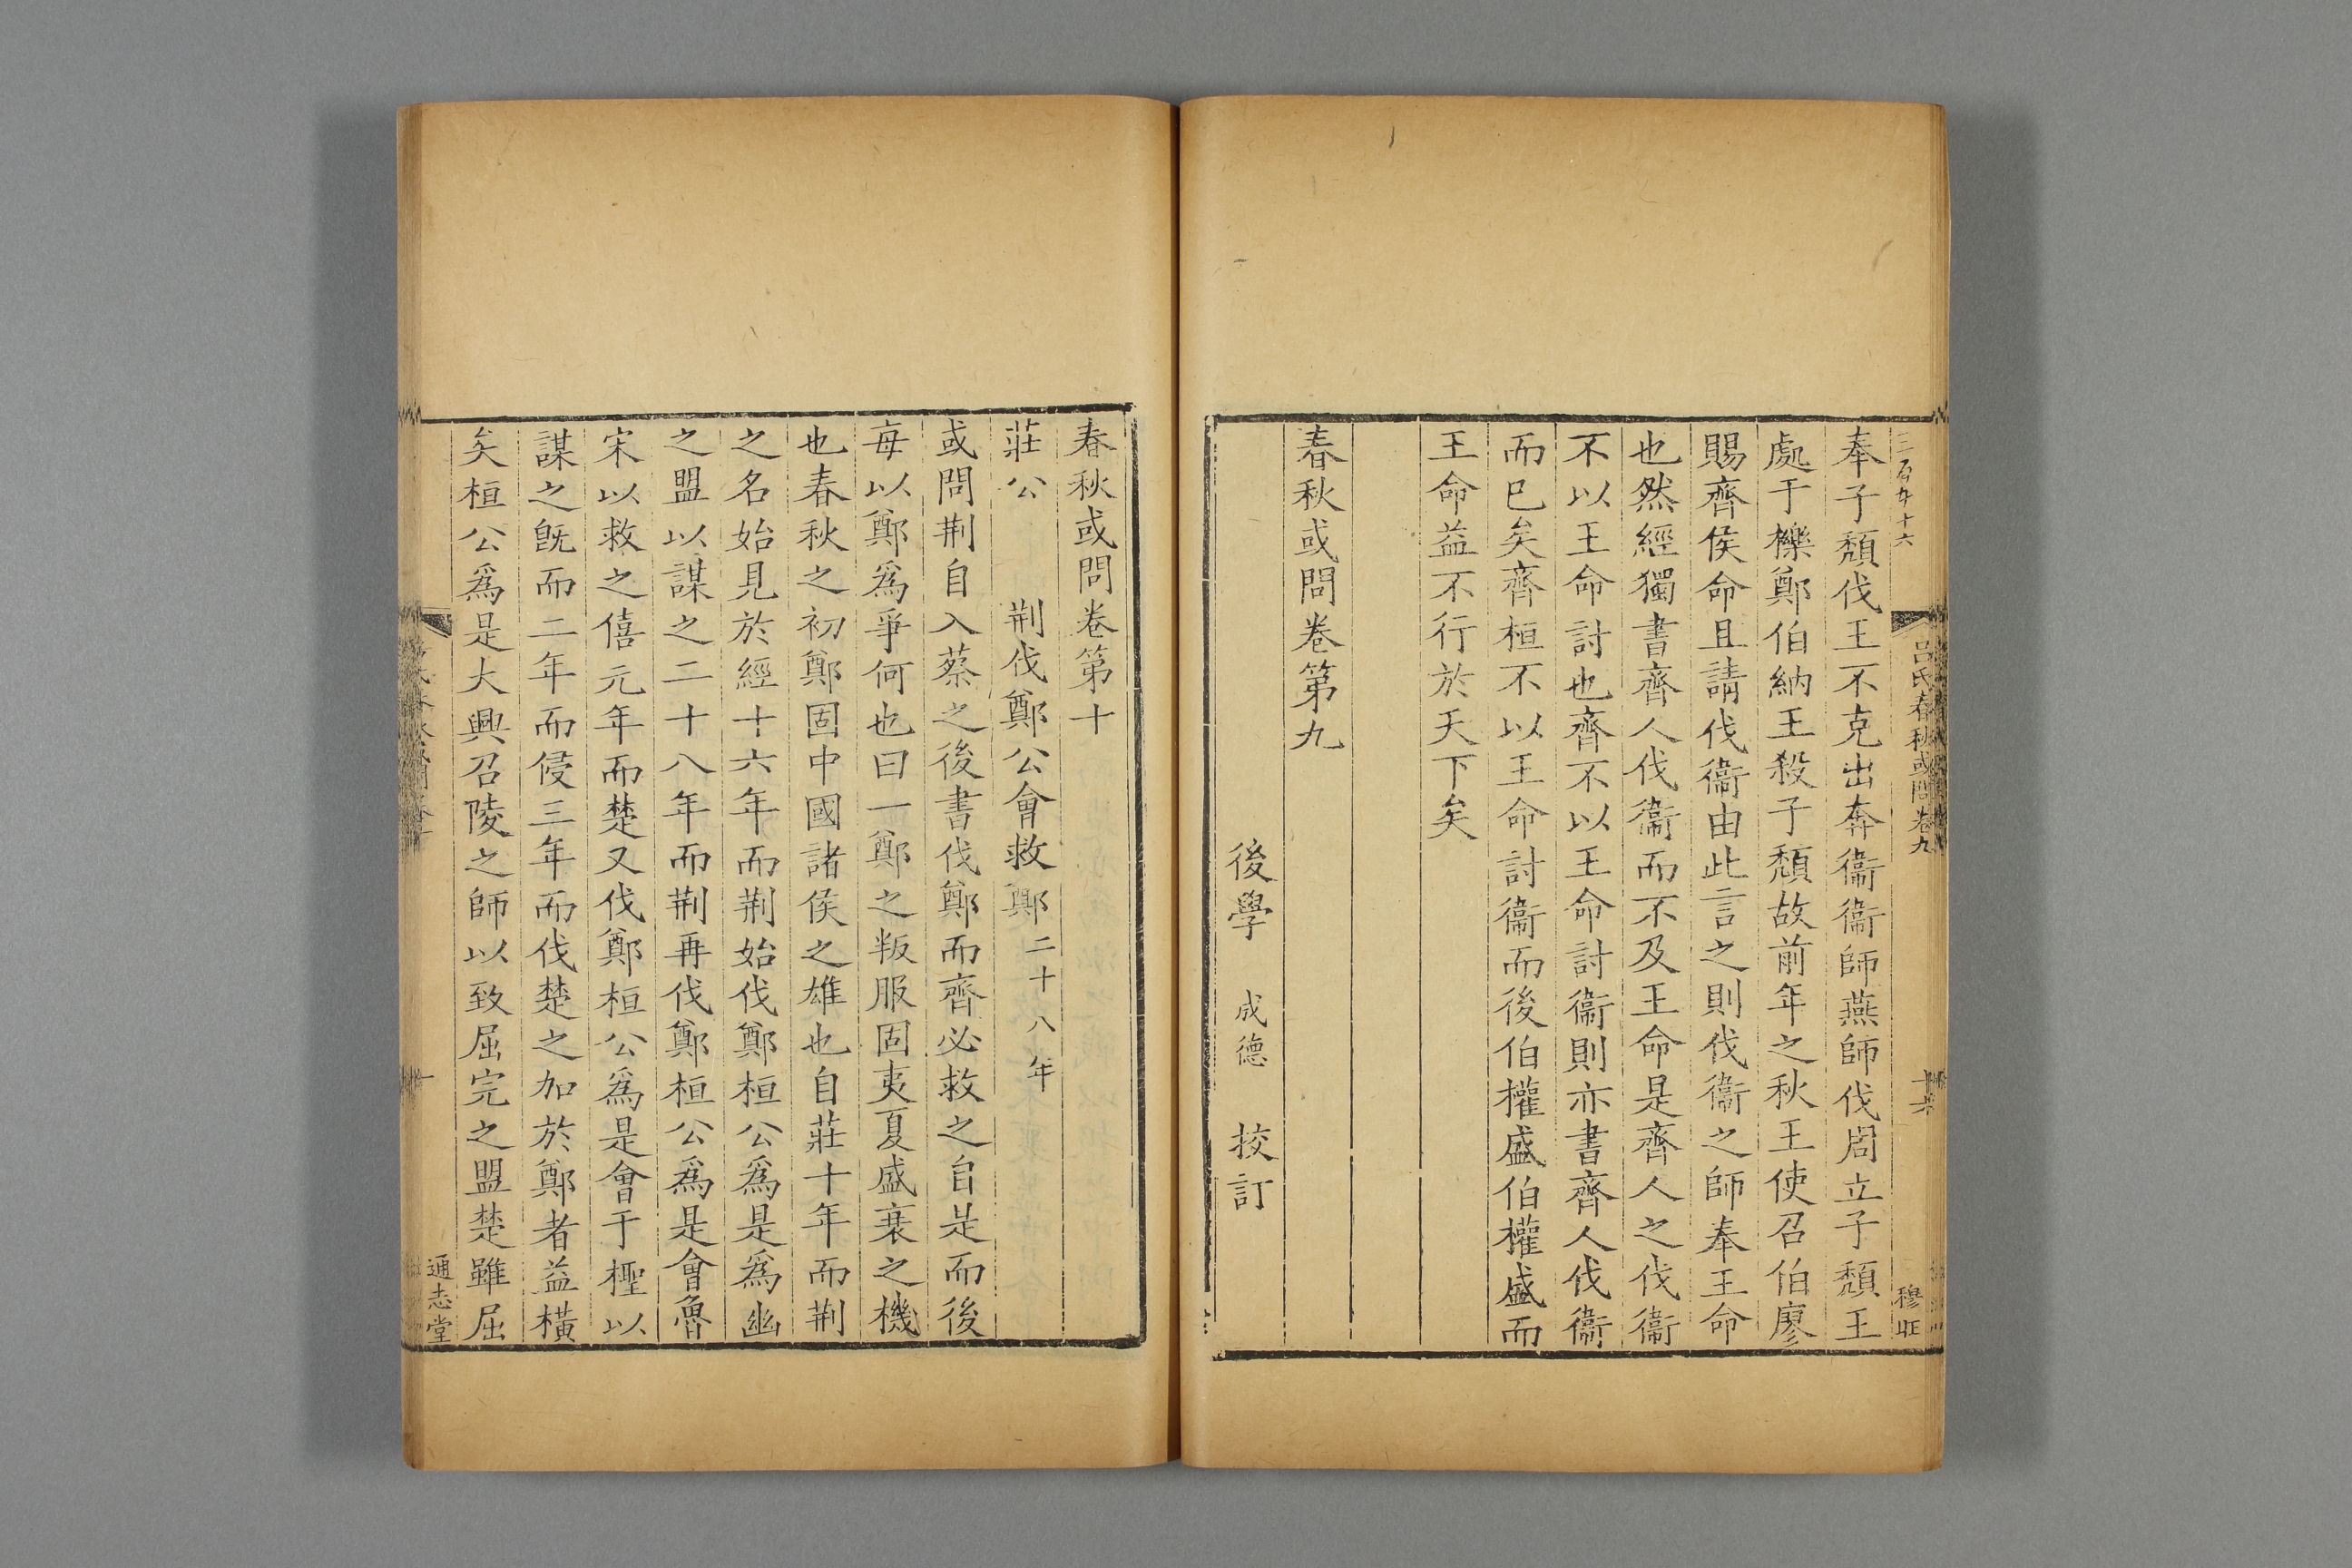 奉子頹伐王不克出奔衞衞師燕師伐周立子頹王
處于櫟鄭伯納王殺子頹故前年之秋王使召伯廖
賜齊侯命且請伐衞由此言之則伐衞之師奉王命
也然經獨書齊人伐衞而不及王命是齊人之伐衞
不以王命討也齊不以王命討衞則亦書齊人伐衞
而已矣齊桓不以王命討衞而後伯權盛伯權盛而
王命益不行於天下矣
春秋或問卷第九
後學 成德 挍訂
呂氏春秋或問卷九
春秋或問卷第十
莊公 荆伐鄭公會救鄭二十八年
或問荆自入蔡之後書伐鄭而齊必救之自是而後
每以鄭爲爭何也曰一鄭之叛服固夷夏盛衰之機
也春秋之初鄭固中國諸侯之雄也自莊十年而荆
之名始見於經十六年而荆始伐鄭桓公爲是爲幽
之盟以謀之二十八年而荆再伐鄭桓公爲是會魯
宋以救之僖元年而楚又伐鄭桓公爲是會于檉以
謀之旣而二年而侵三年而伐楚之加於鄭者益橫
矣桓公爲是大興召陵之師以致屈完之盟楚雖屈
通志堂